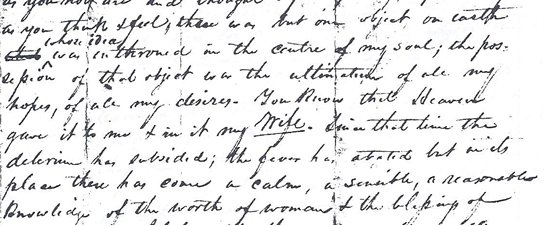 as you now are and thought
as you think & feel, there was but one object on earth
whose idea
was inthroned in the centre of my soul; the pos-
session of that object was the ultimatum of all my
hopes, of all my desires. You Know that Heaven
gave it to me & in it my Wife. Since that time the
delirium has subsided; the fever has abated but in its
place there has come a calm, a sensible, a reasonable
Knowledge of the worth of woman & the blessing of